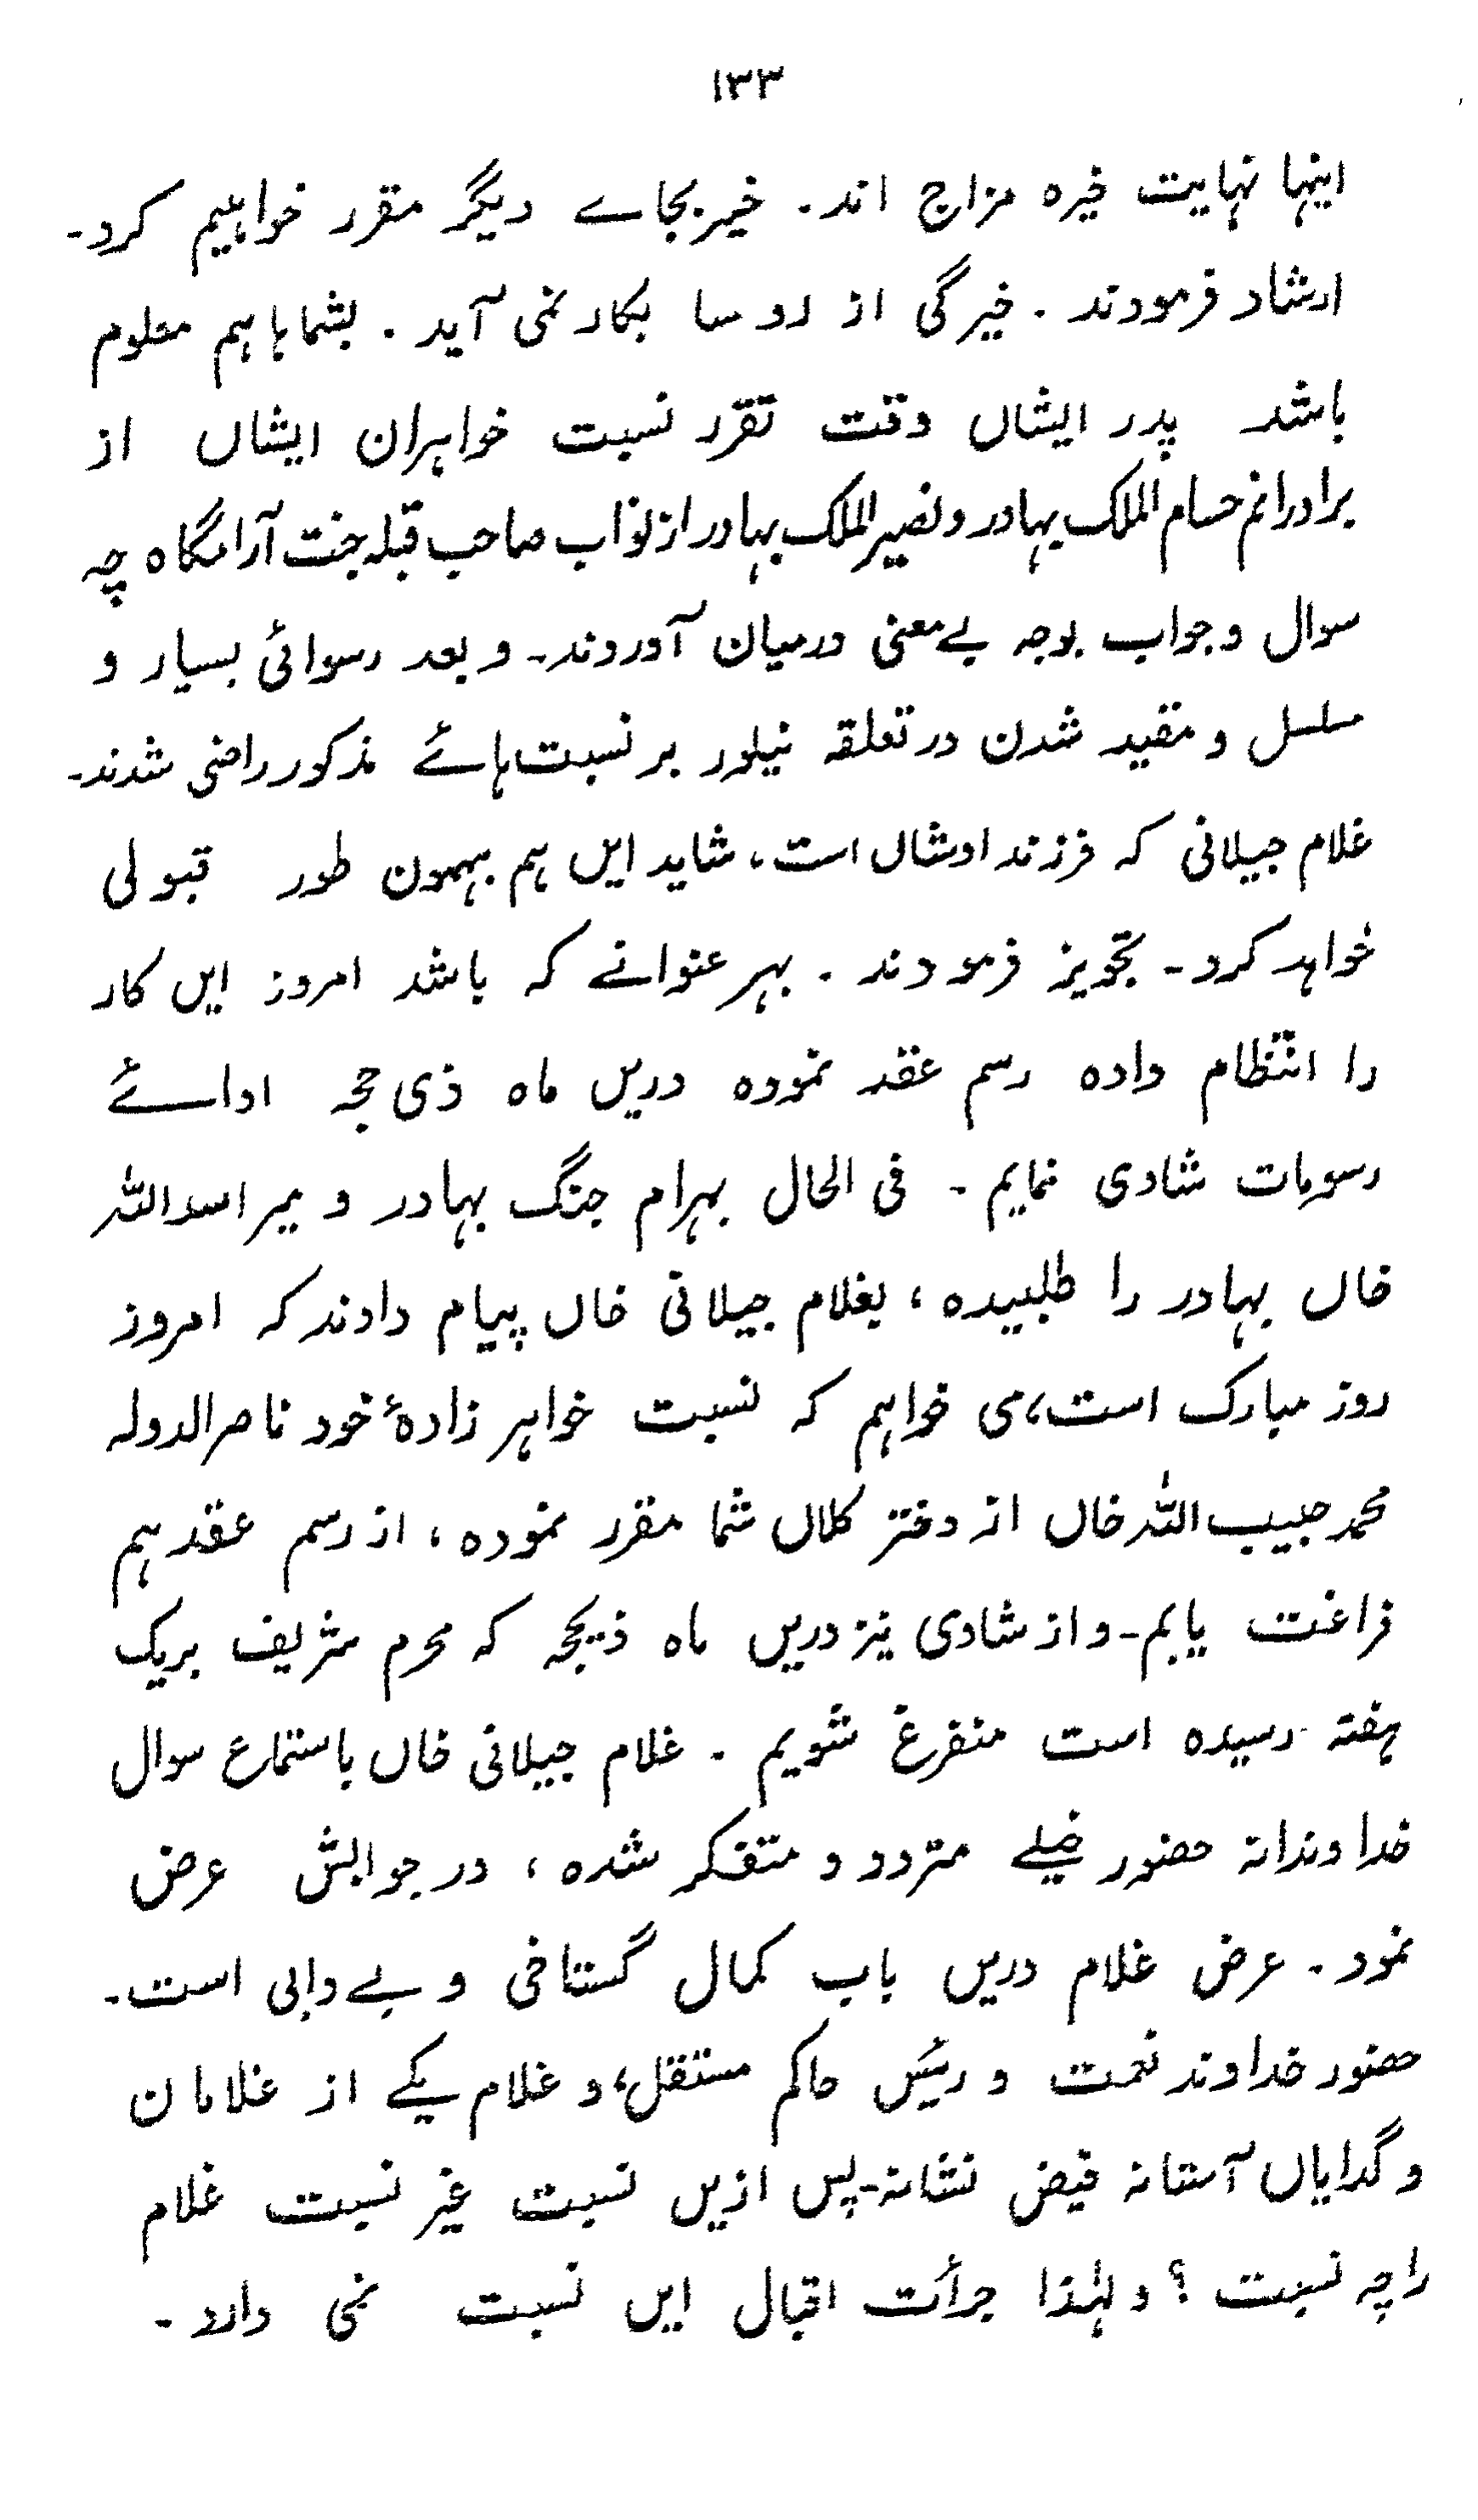 ۱۳۳
اینہا نہایت خیرہ مزاج اند۔ خیر بجاے دیگر مقرر خواہیم کرد۔
ارشاد فرمودند۔ خیرگی از رو سا بکار نمی آید۔ بشماہا ہم معلوم
باشد پدر ایشاں وقت تقرر نسبت خواہران ایشاں از
برادرانم حسام الملک بہادر و نصیر الملک بہادر از نواب صاحب قبلہ جنت آرامگاہ چہ
سوال و جواب بوجہ بے معنی درمیان آوردند۔ و بعد رسوائی بسیار و
مسلسل و مقید شدن در تعلقہ نیلور بر نسبت ہائے مذکور راضی شدند۔
غلام جیلانی کہ فرزند اوشاں است، شاید ایں ہم بہمون طور قبولی
خواہد کرد۔ تجویز فرمودند۔ بہر عنوانے کہ باشد امروز ایں کار
را انتظام دادہ رسم عقد نمودہ دریں ماہ ذی حجہ ادائے
رسومات شادی نمایم۔ فی الحال بہرام جنگ بہادر و میر اسد اللہ
خاں بہادر را طلبیدہ، بغلام جیلانی خاں پیام دادند کہ امروز
روز مبارک است، می خواہم کہ نسبت خواہر زادۂ خود ناصر الدولہ
محمد حبیب اللہ خاں از دختر کلاں شما مقرر نمودہ، از رسم عقد ہم
فراغت یابم۔ و از شادی نیز دریں ماہ ذیحجہ کہ محرم شریف بریک
ہفتہ رسیدہ است متفرغ شویم۔ غلام جیلانی خاں باستماع سوال
خداوندانہ حضور خیلے متردد و متفکر شدہ، در جوابش عرض
نمود۔ عرض غلام دریں باب کمال گستاخی و بے دابی است۔
حضور خداوند نعمت و رئیس حاکم مستقل، و غلام یکے از غلامان
و گدایاں آستانہ فیض نشانہ۔ پس ازیں نسبت غیر نسبت غلام
را چہ نسبت؟ و لہٰذا جرأت اقبال ایں نسبت نمی دارد۔